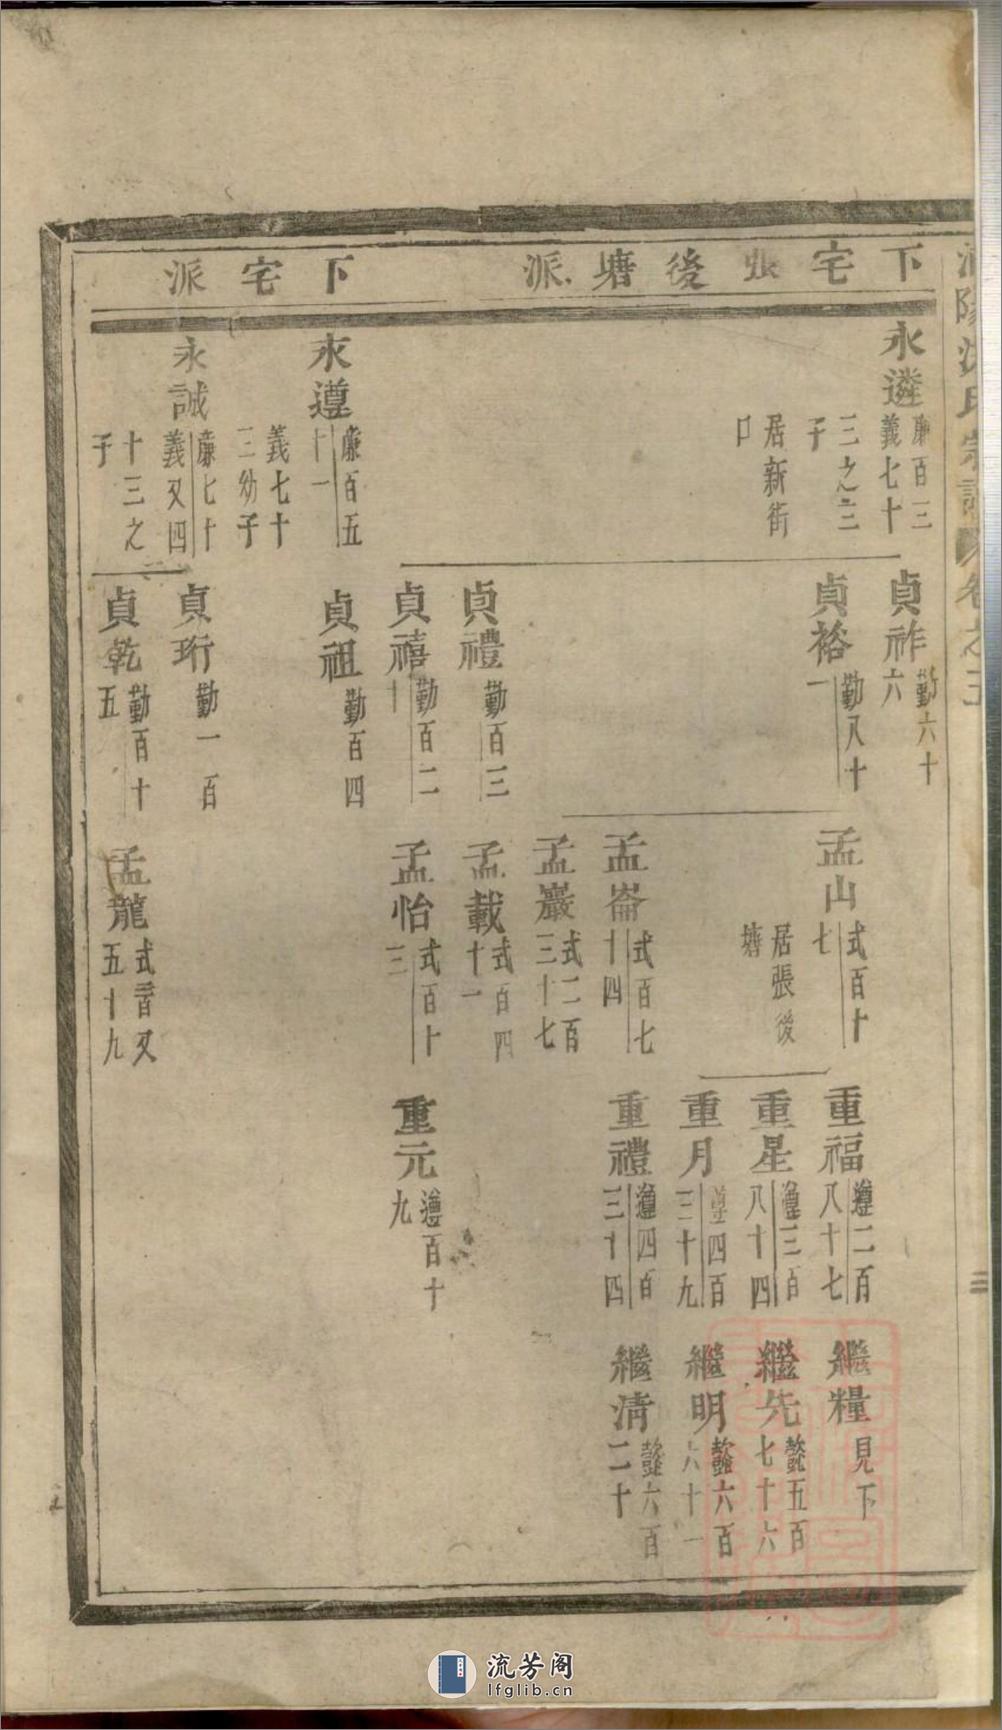 氏宗譜 卷之三
下宅張後塘派
下宅派
永遴
廉百三
義七十
三之三
子
居新街
口
永遵
廉百五
十一
義七十
三幼子
永誠
廉七十
義又四
十三之
子
貞祚
勤六十
六
貞裕
勤八十
一
貞禮
勤百三
貞禧
勤百二
十
貞祖
勤百四
貞珩
勤一百
貞乾
勤百十
五
孟山
式百十
七
居張後
塘
孟崙
式百七
十四
孟巖
式二百
三十七
孟載
式百四
十一
孟怡
式百十
三
孟龍
五十九
重福
遵二百
八十七
重星
遵三百
八十四
重月
遵四百
三十九
重禮
遵四百
三十四
重元
遵百十
九
繼糧
見下
繼先
懿五百
七十六
繼明
懿六百
六十一
繼清
懿六百
二十
流芳阁
lfglib.cn